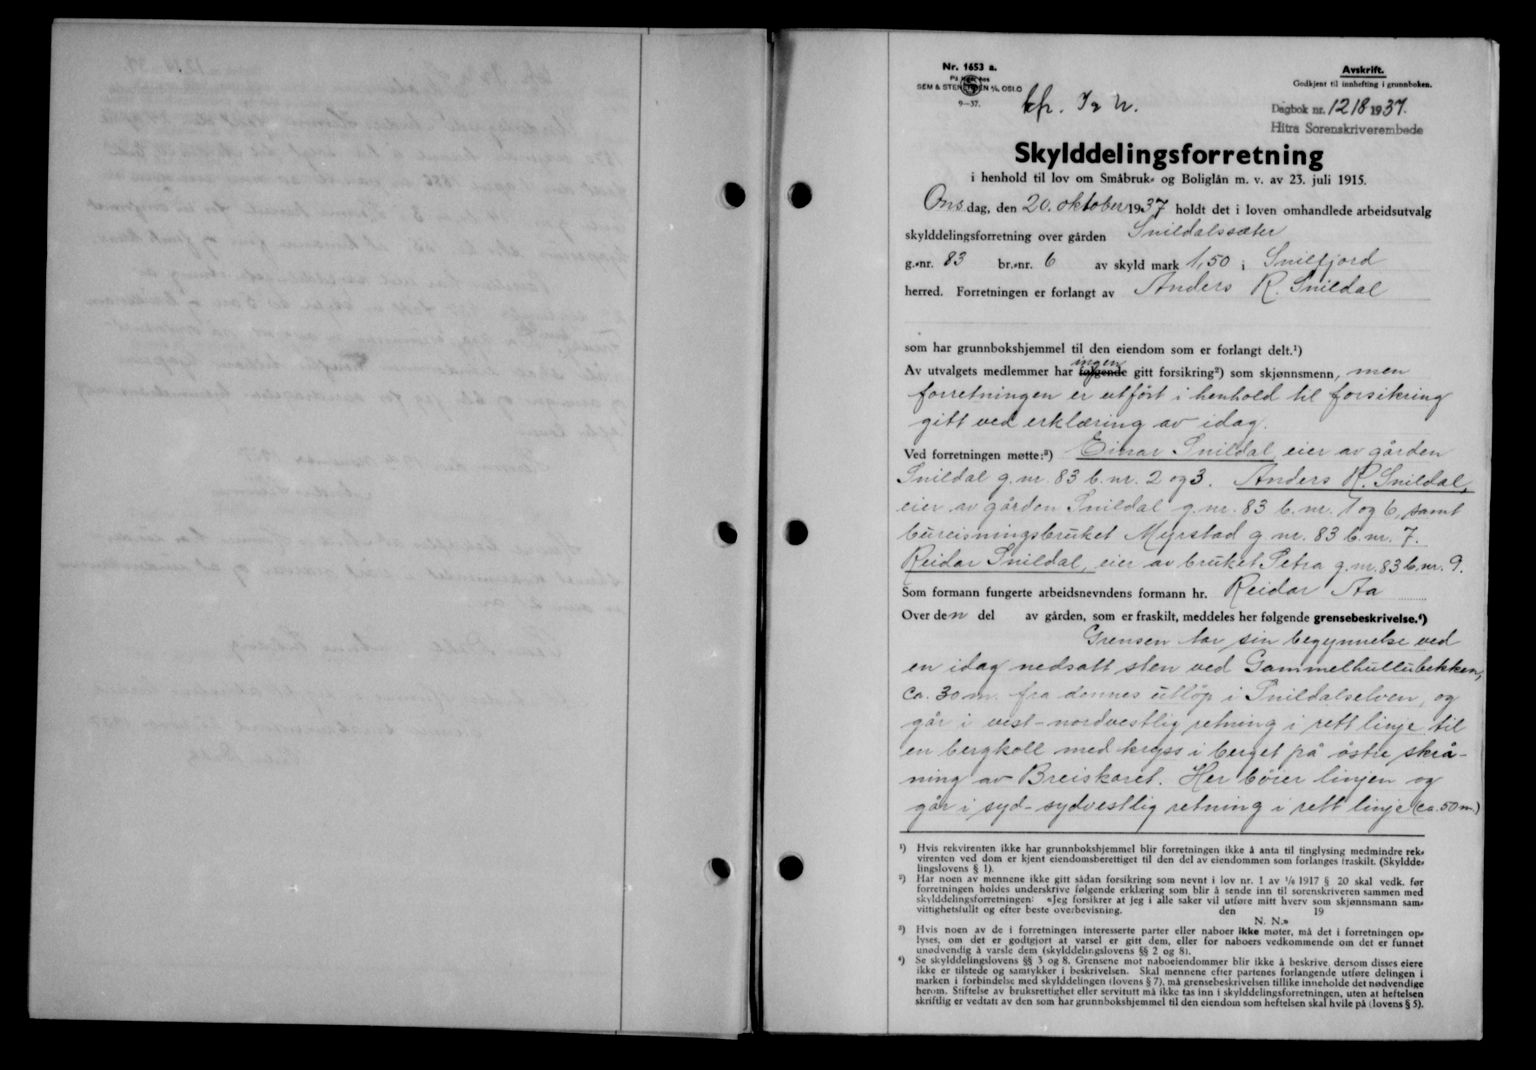 Nr. 1653 a.
På lager hos
SEM & STENERSEN A/S OSLO
9—37.
Avskrift.
Godkjent til innhefting i grunnboken.
Dagbok nr. 1218 1937.
Hitra Sorenskriverembede
Skylddelingsforretning
i henhold til lov om Småbruk- og Boliglån m. v. av 23. juli 1915.
Onsdag, den 20. oktober 1937 holdt det i loven omhandlede arbeidsutvalg
skylddelingsforretning over gården Snildalssæter
g.-nr. 83 br.-nr. 6 av skyld mark 1,50 i Snilfjord
herred. Forretningen er forlangt av Anders R. Snildal
som har grunnbokshjemmel til den eiendom som er forlangt delt.¹)
Av utvalgets medlemmer har ingen følgende gitt forsikring²) som skjønnsmenn, men
forretningen er utført i henhold til forsikring
gitt ved erklæring av idag.
Ved forretningen møtte:³) Einar Snildal, eier av gården
Snildal g. nr. 83 b. nr. 2 og 3. Anders R. Snildal,
eier av gården Snildal g. nr. 83 b. nr. 1 og 6, samt
bureisningsbruket Myrstad g. nr. 83 b. nr. 7.
Reidar Snildal, eier av bruket Setra g. nr. 83 b. nr. 9.
Som formann fungerte arbeidsnevndens formann hr. Reidar Aa
Over den del av gården, som er fraskilt, meddeles her følgende grensebeskrivelse.⁴)
Grensen tar sin begynnelse ved
en idag nedsatt sten ved Gammelhullubekken,
ca. 30 m. fra dennes utløp i Snildalselven, og
går i vest-nordvestlig retning i rett linje til
en bergkoll med kryss i berget på østre skrå-
ning av Breiskaret. Her bøier linjen og
går i syd-sydvestlig retning i rett linje (ca. 50 m.)
¹) Hvis rekvirenten ikke har grunnbokshjemmel blir forretningen ikke å anta til tinglysing medmindre rek-
virenten ved dom er kjent eiendomsberettiget til den del av eiendommen som forlanges fraskilt. (Skyldde-
lingslovens § 1).
²) Har noen av mennene ikke gitt sådan forsikring som nevnt i lov nr. 1 av 1/6 1917 § 20 skal vedk. før
forretningen holdes underskrive følgende erklæring som blir å sende inn til sorenskriveren sammen med
skylddelingsforretningen: «Jeg forsikrer at jeg i alle saker vil utføre mitt hverv som skjønnsmann sam-
vittighetsfullt og efter beste overbevisning. den 19
N. N.»
³) Hvis noen av de i forretningen interesserte parter eller naboer ikke møter, må det i forretningen op-
lyses, om det er godtgjort at varsel er gitt dem, eller for naboers vedkommende om det er funnet
unødvendig å varsle dem (skylddelingslovens §§ 2 og 8).
⁴) Se skylddelingslovens §§ 3 og 8. Grensene mot naboeiendommer blir ikke å beskrive, dersom disses eiere
ikke er tilstede og samtykker i beskrivelsen. Skal mennene efter partenes forlangende utføre delingen i
marken i forbindelse med skylddelingen (lovens § 7), må grensebeskrivelsen tillike inneholde det nødvendige
herom. Stiftelse av bruksrettighet eller servitutt må ikke tas inn i skylddelingsforretningen, uten at heftelsen
skriftlig er vedtatt av den som har grunnbokshjemmel til den eiendom som heftelsen skal hvile på (lovens § 5).